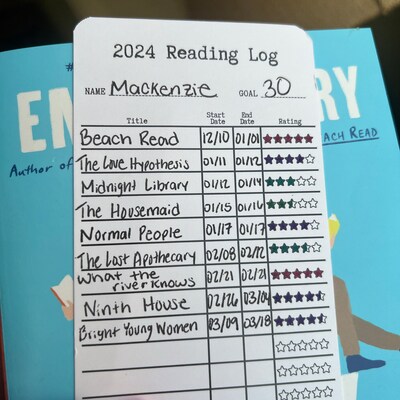 2024 Reading Log
NAME Mackenzie GOAL 30
Title Start Date End Date Rating
Beach Read 12/10 01/01
The Love Hypothesis 01/11 01/12
Midnight Library 01/12 01/14
The Housemaid 01/15 01/16
Normal People 01/17 01/17
The Lost Apothecary 02/08 02/12
What the river knows 02/21 02/21
Ninth House 02/26 03/04
Bright Young Women 03/09 03/18
EM
RY
Author of
BEACH READ